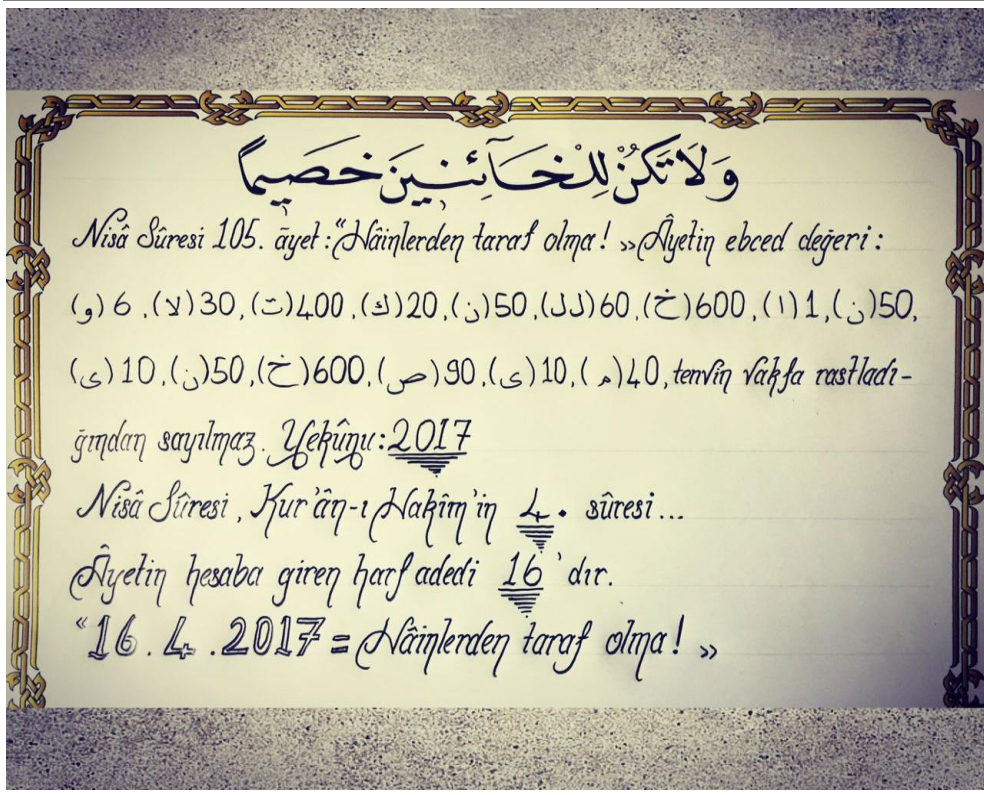 وَلَا تَكُنْ لِلْخَآئِنِينَ خَصِيمًا
Nisâ Sûresi 105. âyet: “Hâinlerden taraf olma! » Âyetin ebced değeri:
(و) 6, (لا) 30, (ت) 400, (ك) 20, (ن) 50, (لل) 60, (خ) 600, (ا) 1, (ن) 50,
(ى) 10, (ن) 50, (خ) 600, (ص) 90, (ى) 10, (م) 40, tenvîn vakfa rastladı-
ğından sayılmaz. Yekûnu: 2017
Nisâ Sûresi, Kur'ân-ı Hakîm'in 4. sûresi...
Âyetin hesaba giren harf adedi 16'dır.
“16.4.2017 = Hâinlerden taraf olma! »